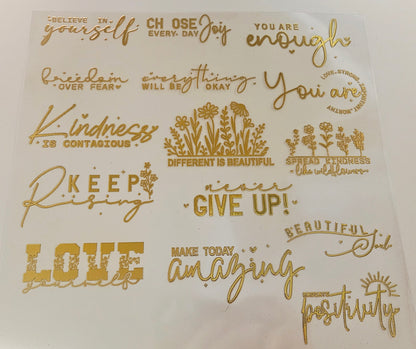 BELIEVE IN
yourself
CHOOSE Joy
EVERY DAY
YOU ARE
enough
freedom
OVER FEAR
everything
WILL BE OKAY
You are
LOVE STRONG
WORTHY
Kindness
IS CONTAGIOUS
DIFFERENT IS BEAUTIFUL
SPREAD KINDNESS
like wildflowers
KEEP
Rising
never
GIVE UP!
BEAUTIFUL
Soul
LOVE
yourself
MAKE TODAY
amazing
positivity